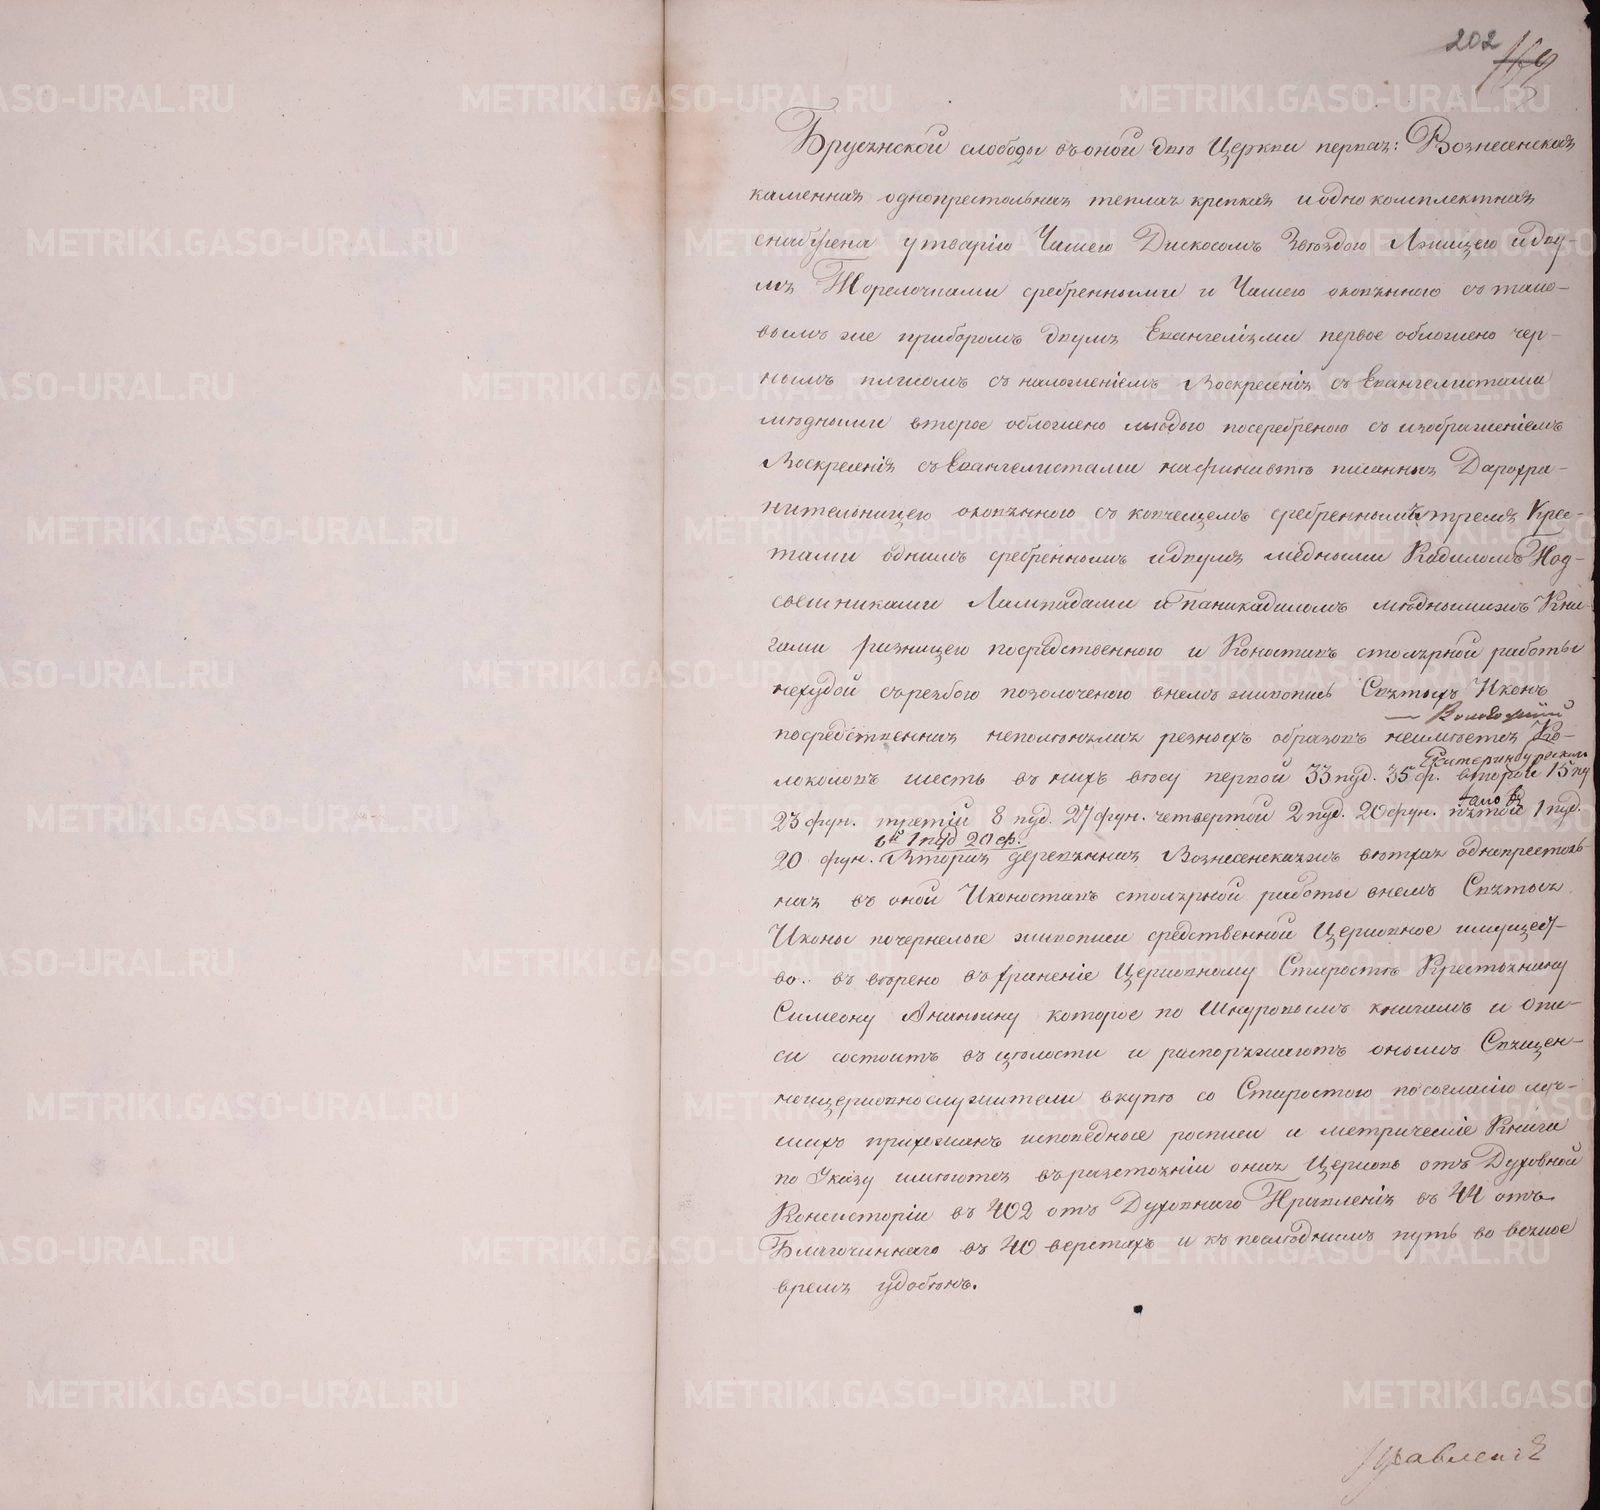 202
Брусянской слободы въ оной две Церкви первая: Вознесенская
каменная однопрестольная теплая крепкая и однокомплектная
снабжена утварію Чашею Дискосомъ Звѣздою Лжицею и дву-
мя Торелочками сребренными и Чашею оловянною съ тако-
вымъ же приборомъ двумя Евангеліями первое обложено чер-
нымъ плисомъ съ наложеніемъ Воскресенія съ Евангелистами
мѣдными второе обложено мѣдью посеребреною съ изображеніемъ
Воскресенія съ Евангелистами на финивтѣ писанных Дарохра-
нительницею оловянною съ ковчегцемъ сребреннымъ тремя Крес-
тами однимъ сребреннымъ и двумя мѣдными Кадиломъ Под-
свешниками Лампадами и Паникадиломъ мѣднымижъ Кни-
гами ризницею посредственною и Коностасъ столярной работы
нехудой съ резбою позолоченою внемъ живопись Святыхъ Иконъ
посредственная неполинялая резныхъ образовъ неимѣется Ко-
локоловъ шесть въ нихъ вѣсу первой 33 пуд. 35 ф. второй 15 пу
Екатеринбургскаго
23 фун. третій 8 пуд. 27 фун. четвертой 2 пуд. 20 фун. пятой 1 пуд.
6й 1 пуд 20 ф.
20 фун. Вторая деревянная Вознесенскаяжъ ветхая однопрестоль-
ная въ оной Иконостасъ столярной работы внемъ Святыя
Иконы почернелые живописи средственной Церковное имущест-
во. въ верено въ храненіе Церковному Старостѣ Крестьянину
Симеону Ананьину которое по Шнуровымъ книгамъ и опи-
си состоитъ въ цѣлости и распоряжаютъ онымъ Священ-
ноцерковнослужители вкупѣ со Старостою по согласію луч-
шихъ прихожанъ исповедные росписи и метрическіе Книги
по Указу имеются въ разстояніи оная Церковь отъ Духовной
Консисторіи въ 402 отъ Духовнаго Правленія въ 44 отъ
Благочиннаго въ 40 верстахъ и къ последнимъ путь во всякое
время удобенъ.
Правленія